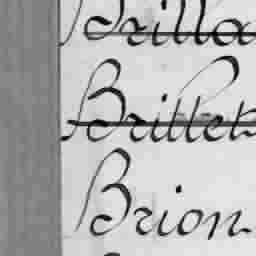 Brilla
Brillet
Brion